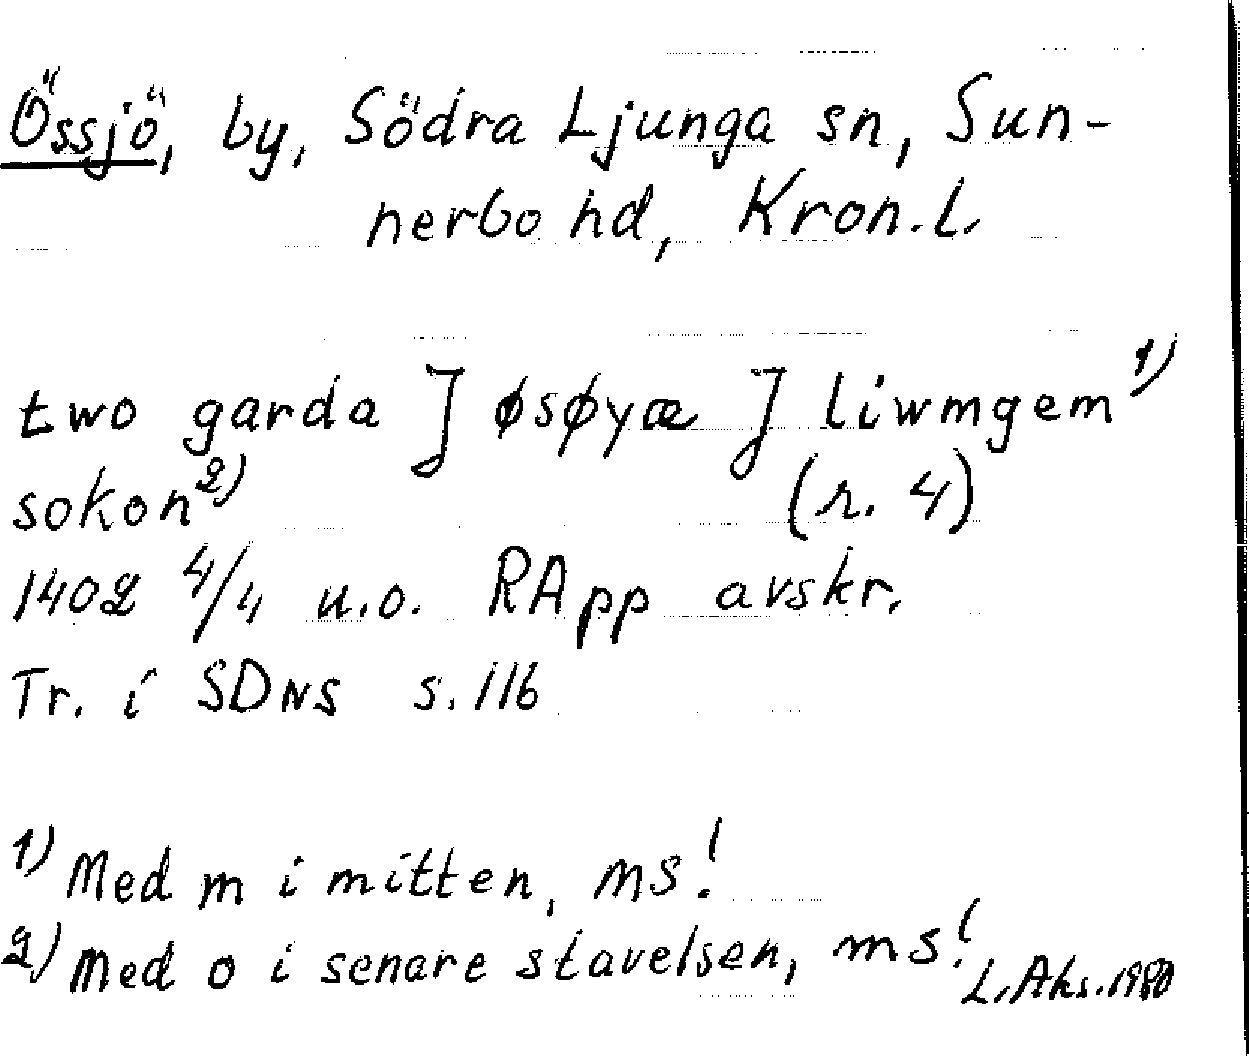 Össjö, by, Södra Ljunga sn, Sun-
nerbo hd, Kron. L.
two garda J øsøyæ J liwmgem 1)
sokon 2) (r. 4)
1402 4/4 u.o. RApp avskr.
Tr. i SDNS s. 116
1) Med m i mitten, ms!
2) Med o i senare stavelsen, ms!
L. Aks. 1980